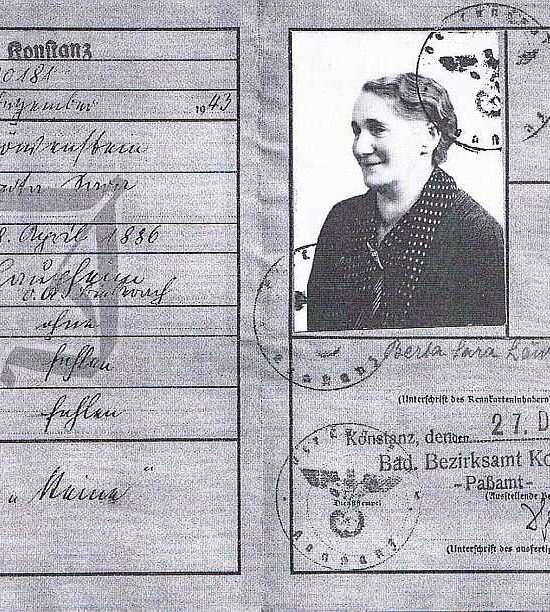 Konstanz
0181
1943
öwenstein
Sara
8. April 1886
ohne
fehlen
fehlen
" Keine "
Berta Sara Löw
(Unterschrift des Kennkarteninhabers
Konstanz, den 27. D
Bad. Bezirksamt Ko
-Paßamt-
(Ausstellende Be
Dienststempel
(Unterschrift des ausfertig